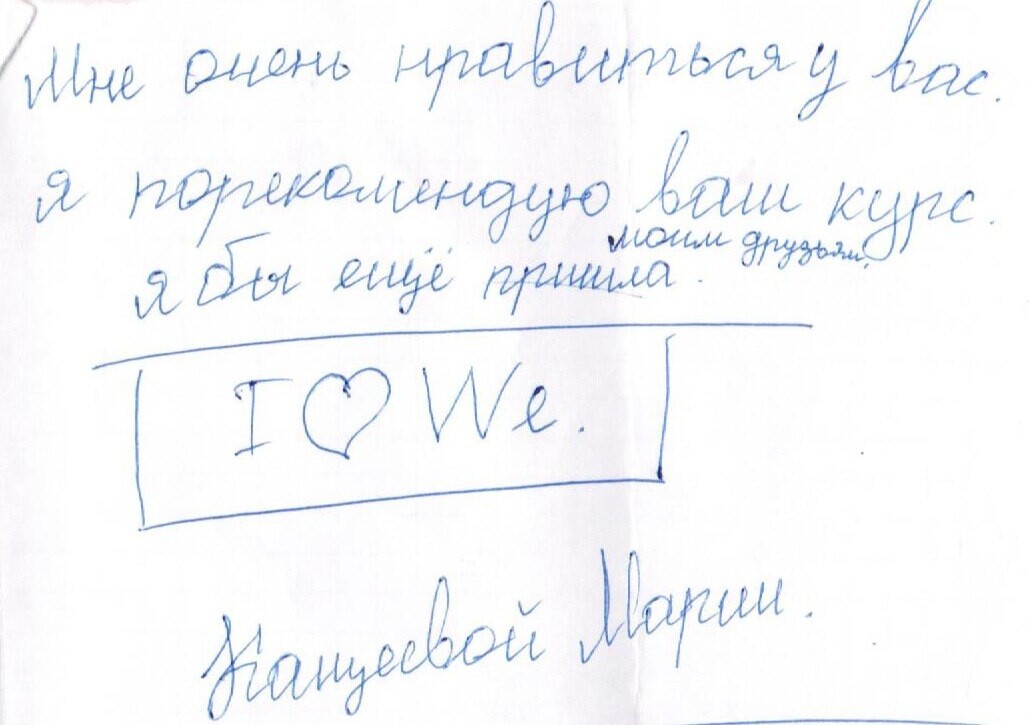 Мне очень нравиться у вас.
я порекомендую ваш курс.
моим друзьям.
я бы ещё пришла.
I ♡ We.
Канцевой Марии.